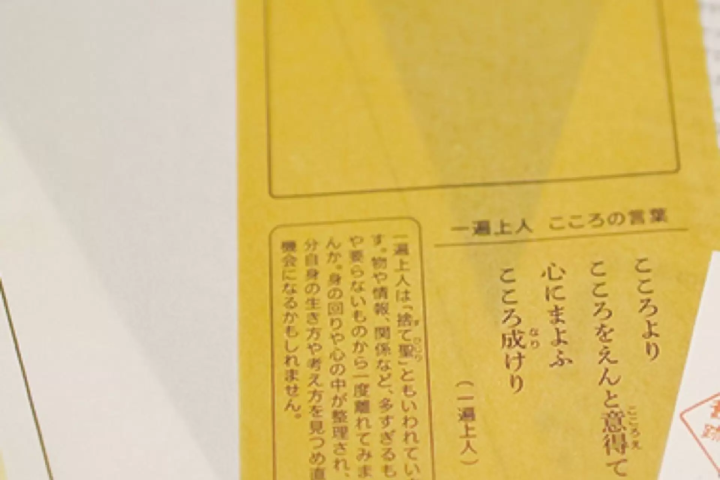 一遍上人 こころの言葉
こころより
こころをえんと意得て
心にまよふ
こころ成けり
(一遍上人)
一遍上人は「捨て聖」ともいわれてい
す。物や情報、関係など、多すぎるも
や要らないものから一度離れてみま
んか。身の回りや心の中が整理され、
分自身の生き方や考え方を見つめ直
機会になるかもしれません。